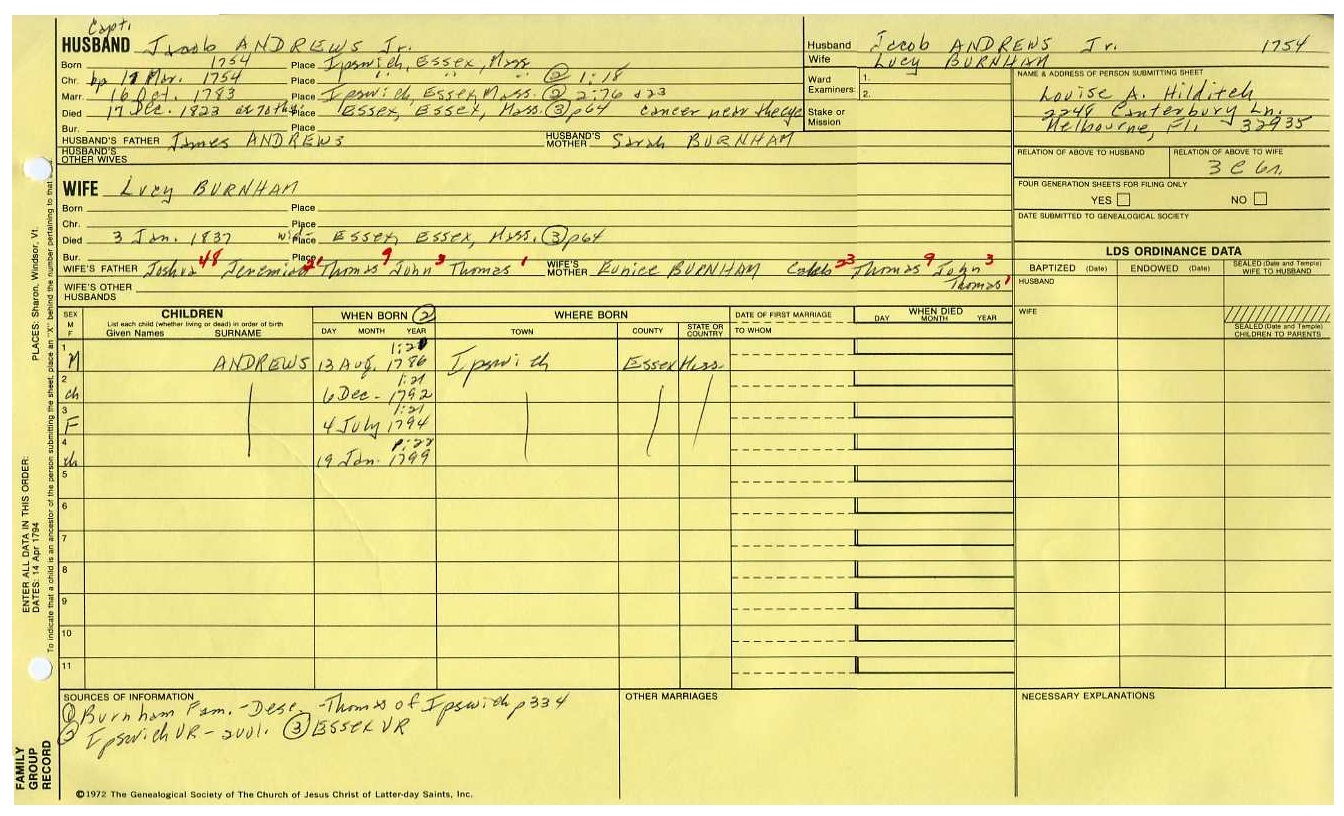 Capt.
HUSBAND Jacob ANDREWS Jr.
Born 1754 Place Ipswich, Essex, Mass
Chr. bp 17 Mar. 1754 Place " " " ② 1:18
Marr. 16 Oct. 1783 Place Ipswich, Essex, Mass. ② 2:76 &23
Died 17 Dec. 1823 ae 70th yr Place Essex, Essex, Mass. ③ p64 cancer near the eye
Bur. Place
HUSBAND'S FATHER James ANDREWS HUSBAND'S MOTHER Sarah BURNHAM
HUSBAND'S OTHER WIVES
WIFE Lucy BURNHAM
Born Place
Chr. Place
Died 3 Jan. 1837 wid. Place Essex, Essex, Mass. ③ p64
Bur. Place
WIFE'S FATHER Joshua 48 Jeremiah Thomas 9 John 3 Thomas 1 WIFE'S MOTHER Eunice BURNHAM Caleb 23 Thomas 9 John 3
Thomas 1
WIFE'S OTHER HUSBANDS
Husband Jacob ANDREWS Jr. 1754
Wife Lucy BURNHAM
Ward Examiners: 1.
2.
Stake or Mission
NAME & ADDRESS OF PERSON SUBMITTING SHEET
Louise A. Hilditch
2248 Canterbury Ln.
Melbourne, Fl. 32935
RELATION OF ABOVE TO HUSBAND RELATION OF ABOVE TO WIFE
3 C 6r.
FOUR GENERATION SHEETS FOR FILING ONLY
YES NO
DATE SUBMITTED TO GENEALOGICAL SOCIETY
LDS ORDINANCE DATA
BAPTIZED (Date) ENDOWED (Date) SEALED (Date and Temple) WIFE TO HUSBAND
HUSBAND
WIFE
SEALED (Date and Temple) CHILDREN TO PARENTS
SEX M F
CHILDREN
List each child (whether living or dead) in order of birth
Given Names SURNAME
WHEN BORN ②
DAY MONTH YEAR
WHERE BORN
TOWN COUNTY STATE OR COUNTRY
DATE OF FIRST MARRIAGE
TO WHOM
WHEN DIED
DAY MONTH YEAR
1 1:20
M ANDREWS 13 Aug. 1786 Ipswich Essex Mass.
2 1:21
ch 6 Dec. 1792
3 1:21
F 4 July 1794
4 1:22
ch 19 Jan. 1799
5
6
7
8
9
10
11
SOURCES OF INFORMATION
① Burnham Fam. - Desc. - Thomas of Ipswich p334
② Ipswich VR - 2vol. ③ Essex VR
OTHER MARRIAGES
NECESSARY EXPLANATIONS
©1972 The Genealogical Society of The Church of Jesus Christ of Latter-day Saints, Inc.
FAMILY GROUP RECORD
ENTER ALL DATA IN THIS ORDER:
DATES: 14 Apr 1794
PLACES: Sharon, Windsor, Vt.
To indicate that a child is an ancestor of the person submitting the sheet, place an "X" behind the number pertaining to that